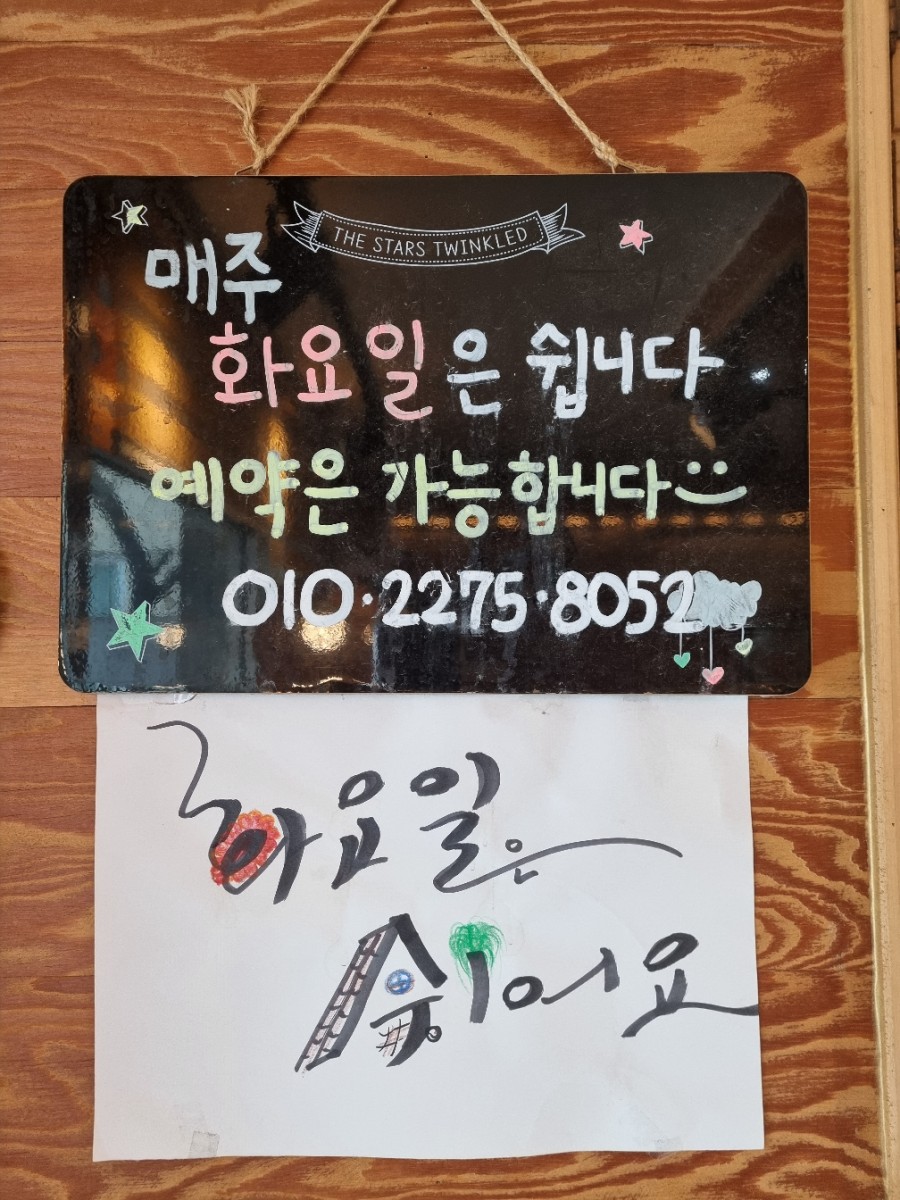 THE STARS TWINKLED
매주
화요일은 쉽니다
예약은 가능합니다
010·2275·8052
화요일은
쉬어요